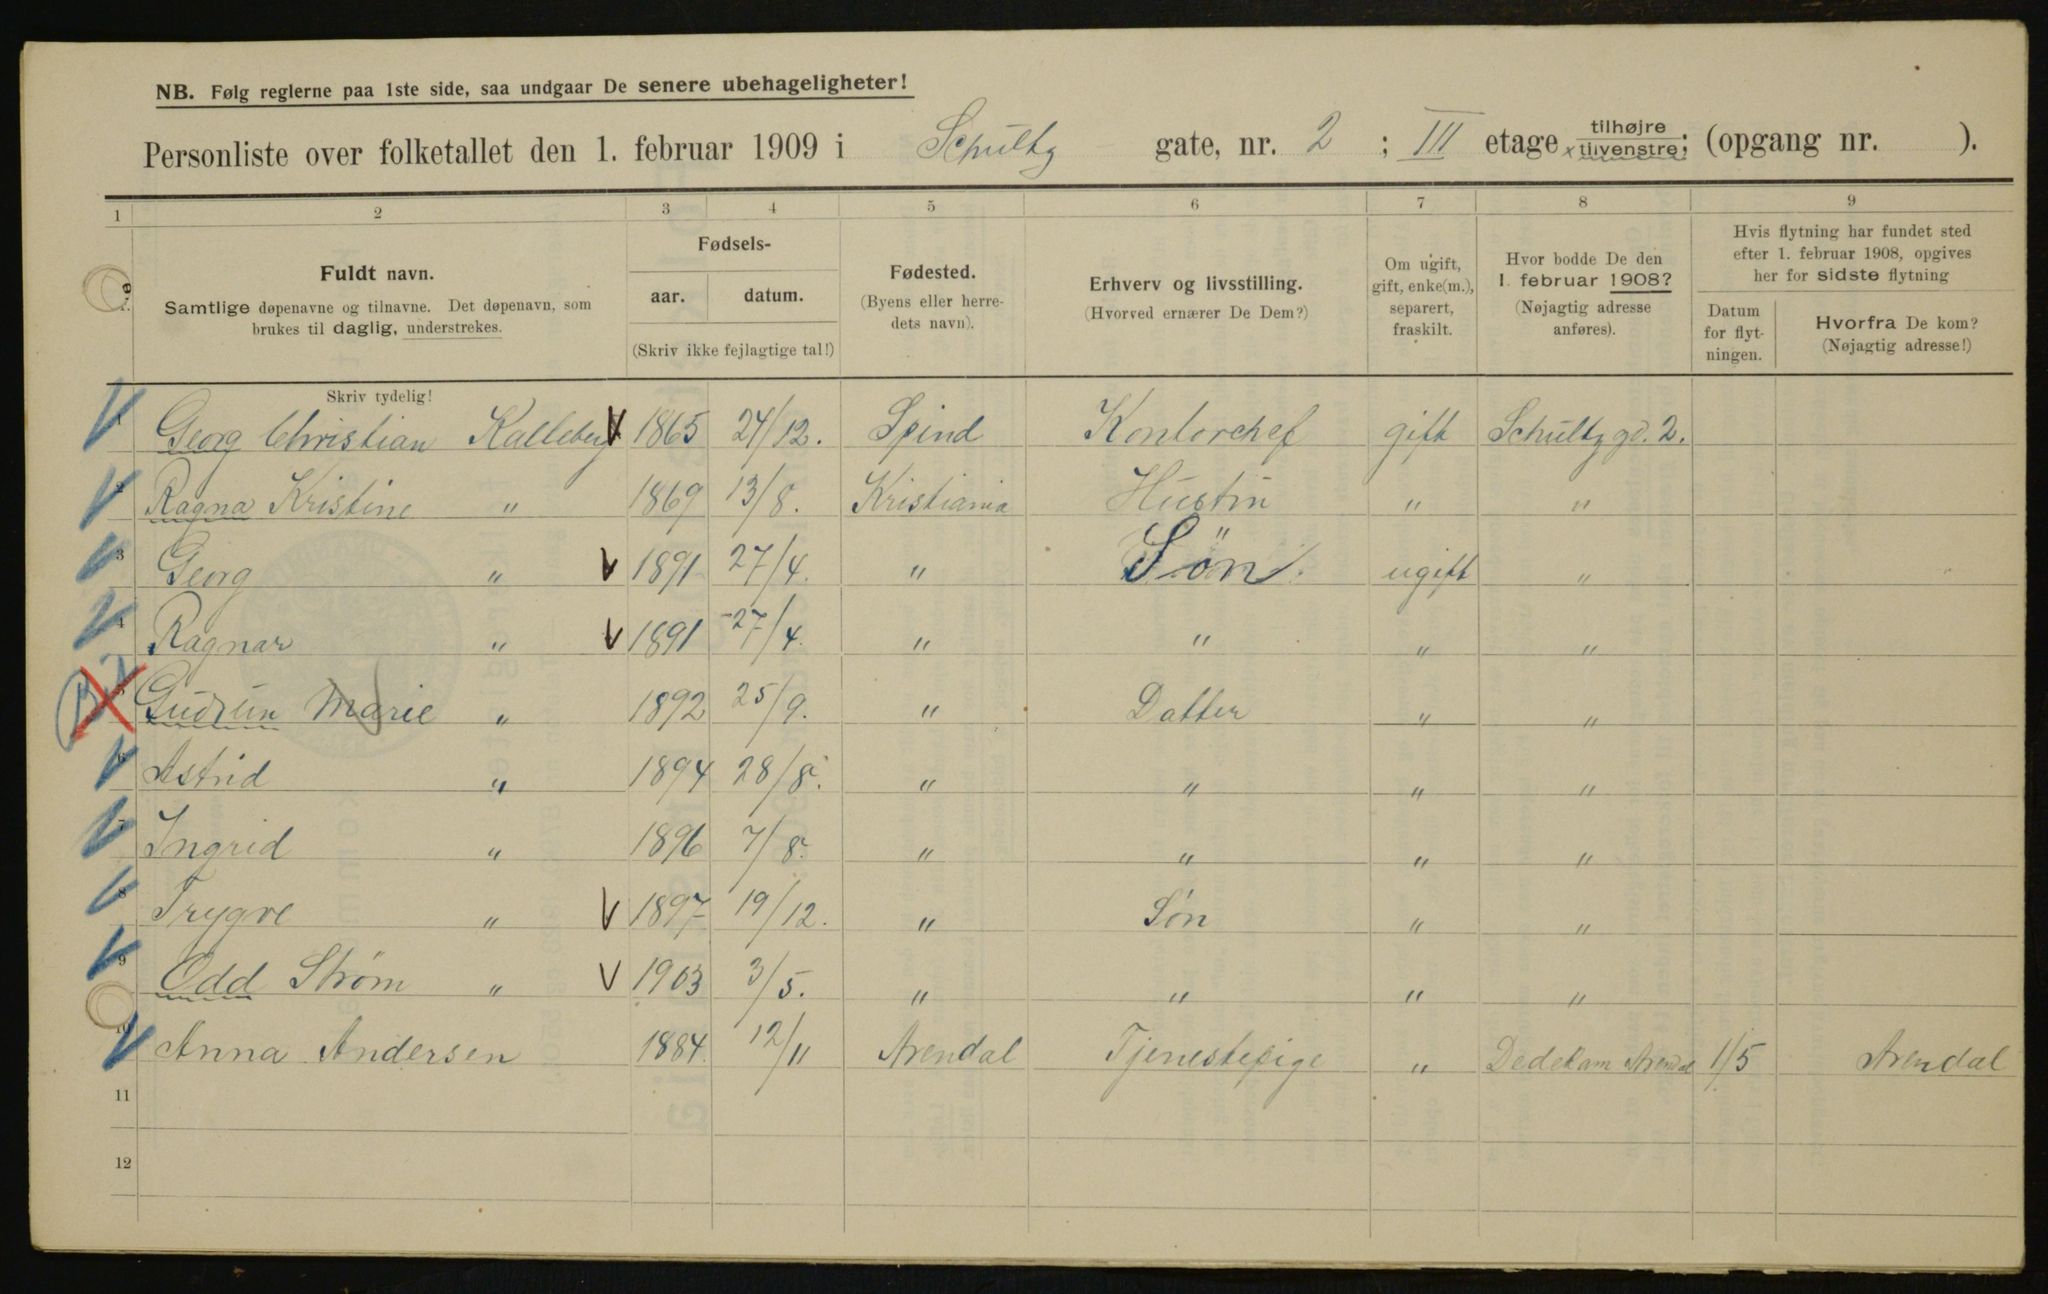 NB. Følg reglerne paa 1ste side, saa undgaar De senere ubehageligheter!
Personliste over folketallet den 1. februar 1909 i Schultz gate, nr. 2 ; III etage tilhøjre x tilvenstre; (opgang nr. ).
1 2 3 4 5 6 7 8 9
Fuldt navn.
Samtlige døpenavne og tilnavne. Det døpenavn, som
brukes til daglig, understrekes.
Fødsels-
aar. datum.
(Skriv ikke fejlagtige tal!)
Fødested.
(Byens eller herre-
dets navn).
Erhverv og livsstilling.
(Hvorved ernærer De Dem?)
Om ugift,
gift, enke(m.),
separert,
fraskilt.
Hvor bodde De den
1. februar 1908?
(Nøjagtig adresse
anføres).
Hvis flytning har fundet sted
efter 1. februar 1908, opgives
her for sidste flytning
Datum
for flyt-
ningen.
Hvorfra De kom?
(Nøjagtig adresse!)
Skriv tydelig!
1 Georg Christian Kalleberg 1865 24/12. Spind Kontorchef gift Schultz gd. 2.
2 Ragna Kristine " 1869 13/8. Kristiania Hustru " "
3 Georg " 1891 27/4. " Søn. ugift "
4 Ragnar " 1891 27/4. " " " "
5 Gudrun Marie " 1892 25/9. " Datter " "
6 Astrid " 1894 28/8. " " " "
7 Ingrid " 1896 7/8. " " " "
8 Trygve " 1897 19/12. " Søn " "
9 Odd Strøm " 1903 3/5. " " " "
10 Anna Andersen 1884. 12/11 Arendal Tjenestepige " Dedekam Arendal 1/5 Arendal
11
12